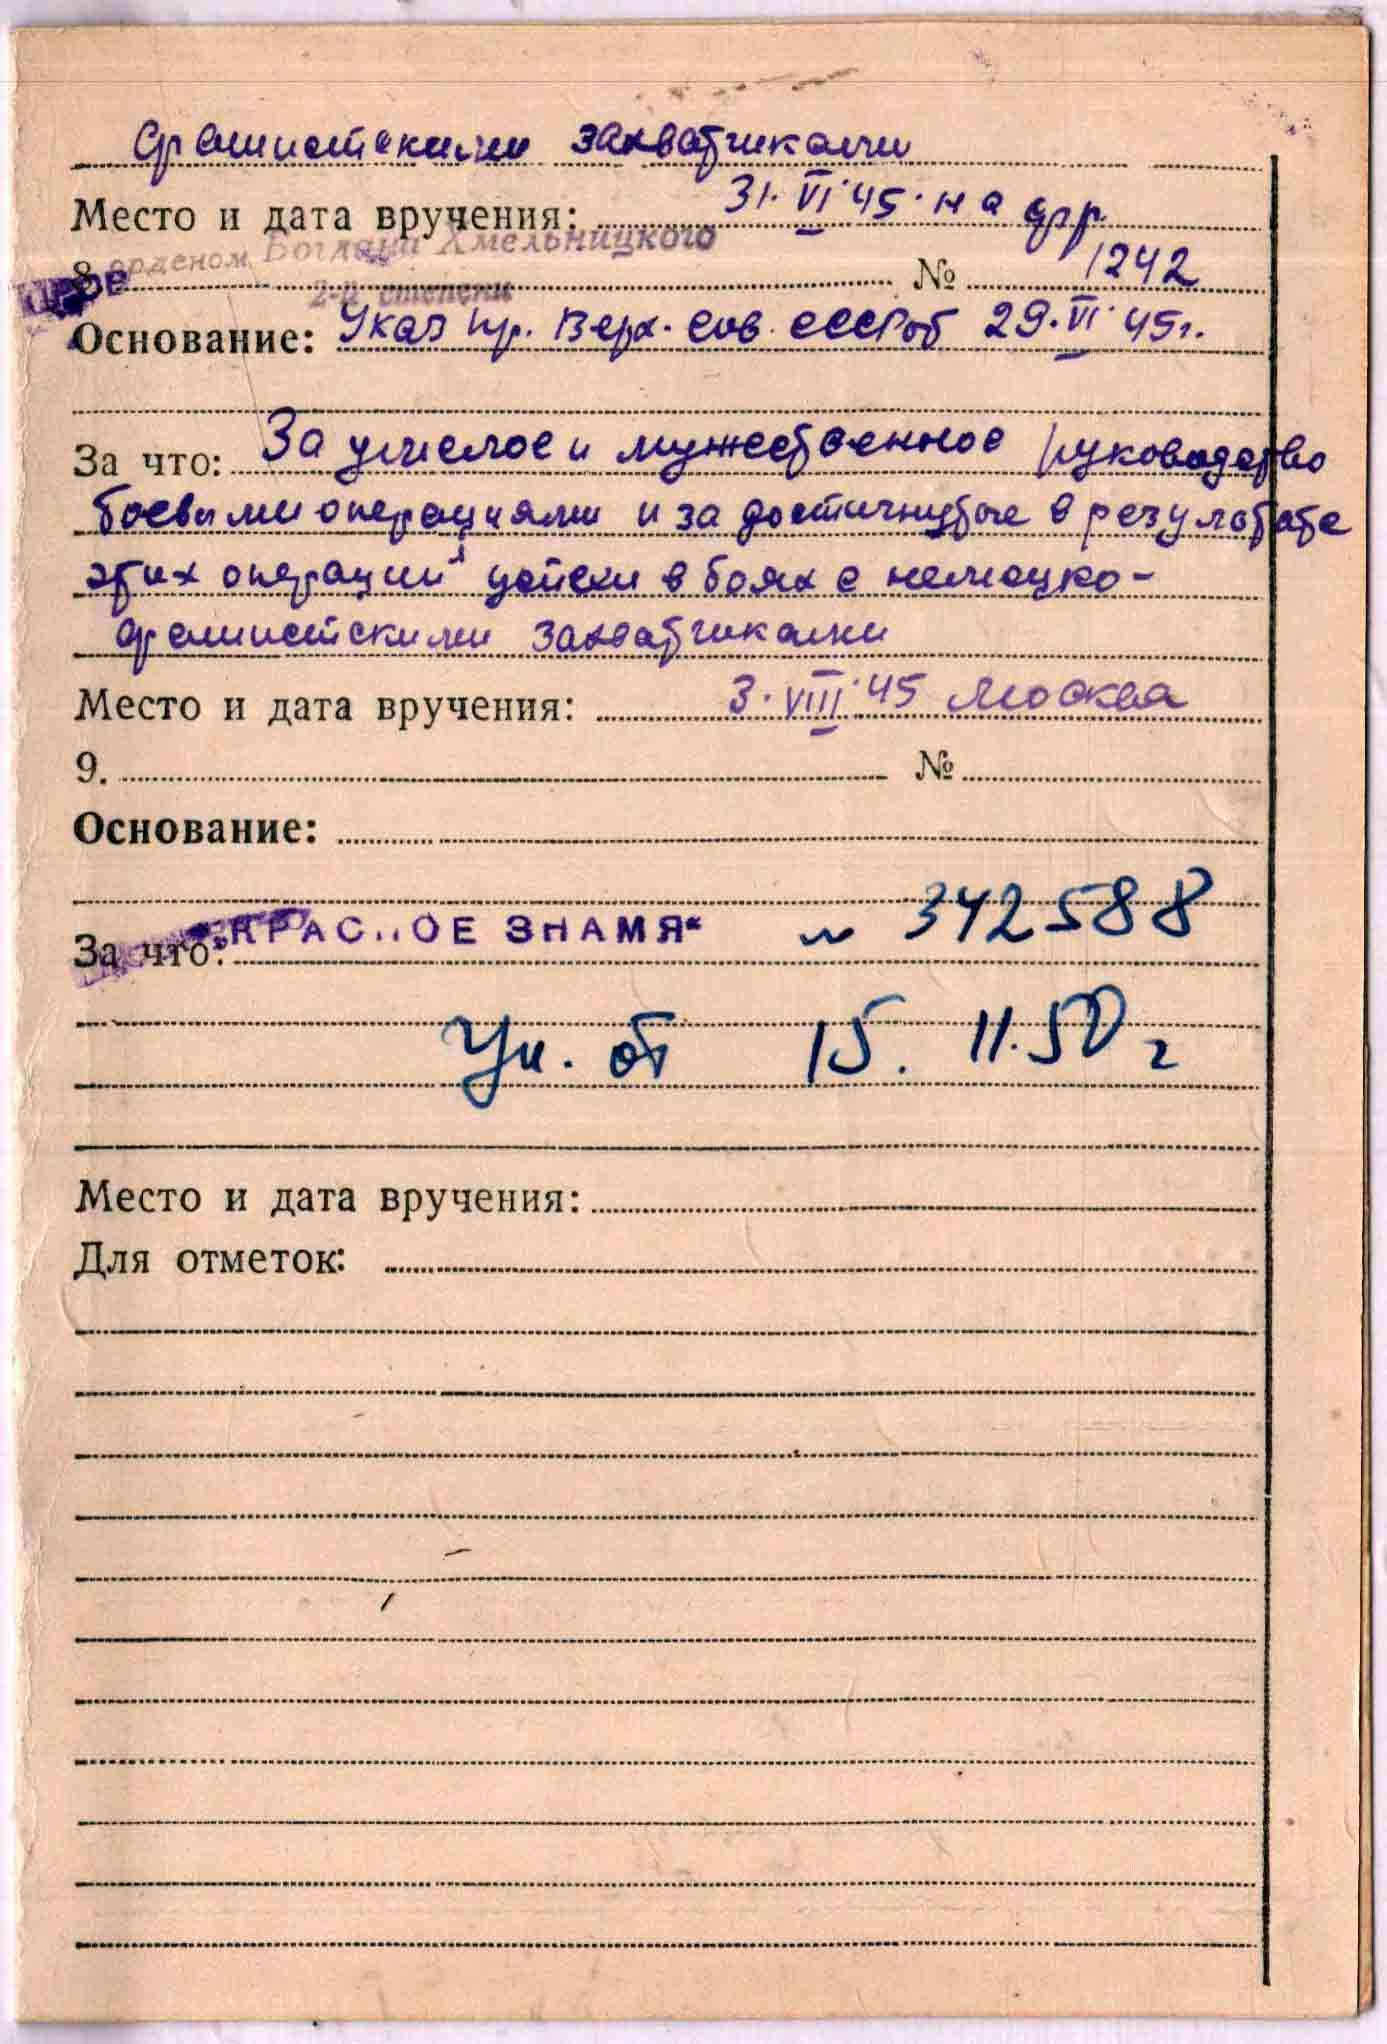 фашистскими захватчиками
Место и дата вручения: 31.VI.45. на фр.
8. орденом Богдана Хмельницкого № 1242
2-й степени
Основание: Указ Пр. Верх. Сов. СССР от 29.VI.45г.
За что: За умелое и мужественное руководство
боевыми операциями и за достигнутые в результате
этих операций успехи в боях с немецко-
фашистскими захватчиками
Место и дата вручения: 3.VIII.45 Москва
9. №
Основание:
За что: „КРАСНОЕ ЗНАМЯ“ № 342588
Ук. от 15. 11.50 г
Место и дата вручения:
Для отметок: